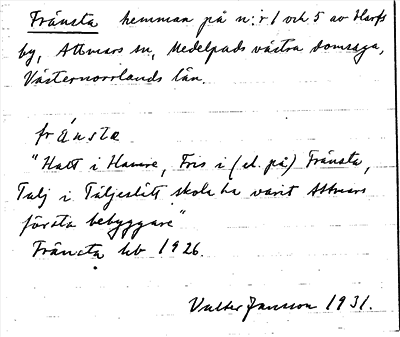 Fränsta hemman på n:r 1 och 5 av Harfs
by, Attmars sn, Medelpads västra domsaga,
Västernorrlands län.
fränsta
"Hatt i Hamre, Fris i (el. på) Fränsta,
Talj i Täljeslätt skola ha varit Attmars
första bebyggare"
Fränsta kb 1926.
Valter Jansson 1931.